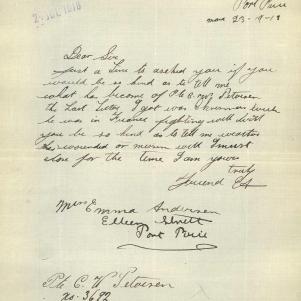 2- JUL 1918
Port Pirie
mar 23-19-18
Dear Sir
Just a Line to asched you if you
would be so kind as to tell me
what has become of Pte C. W. Petersen
the Last Letter I got was
he was in France fighting will
you be so kind as to tell me
wounded or will I must
close for the time I am yours
truly
Miss Emma Andersen
Ellen Street
Port Pirie
Pte C. W Petersen
No. 3692